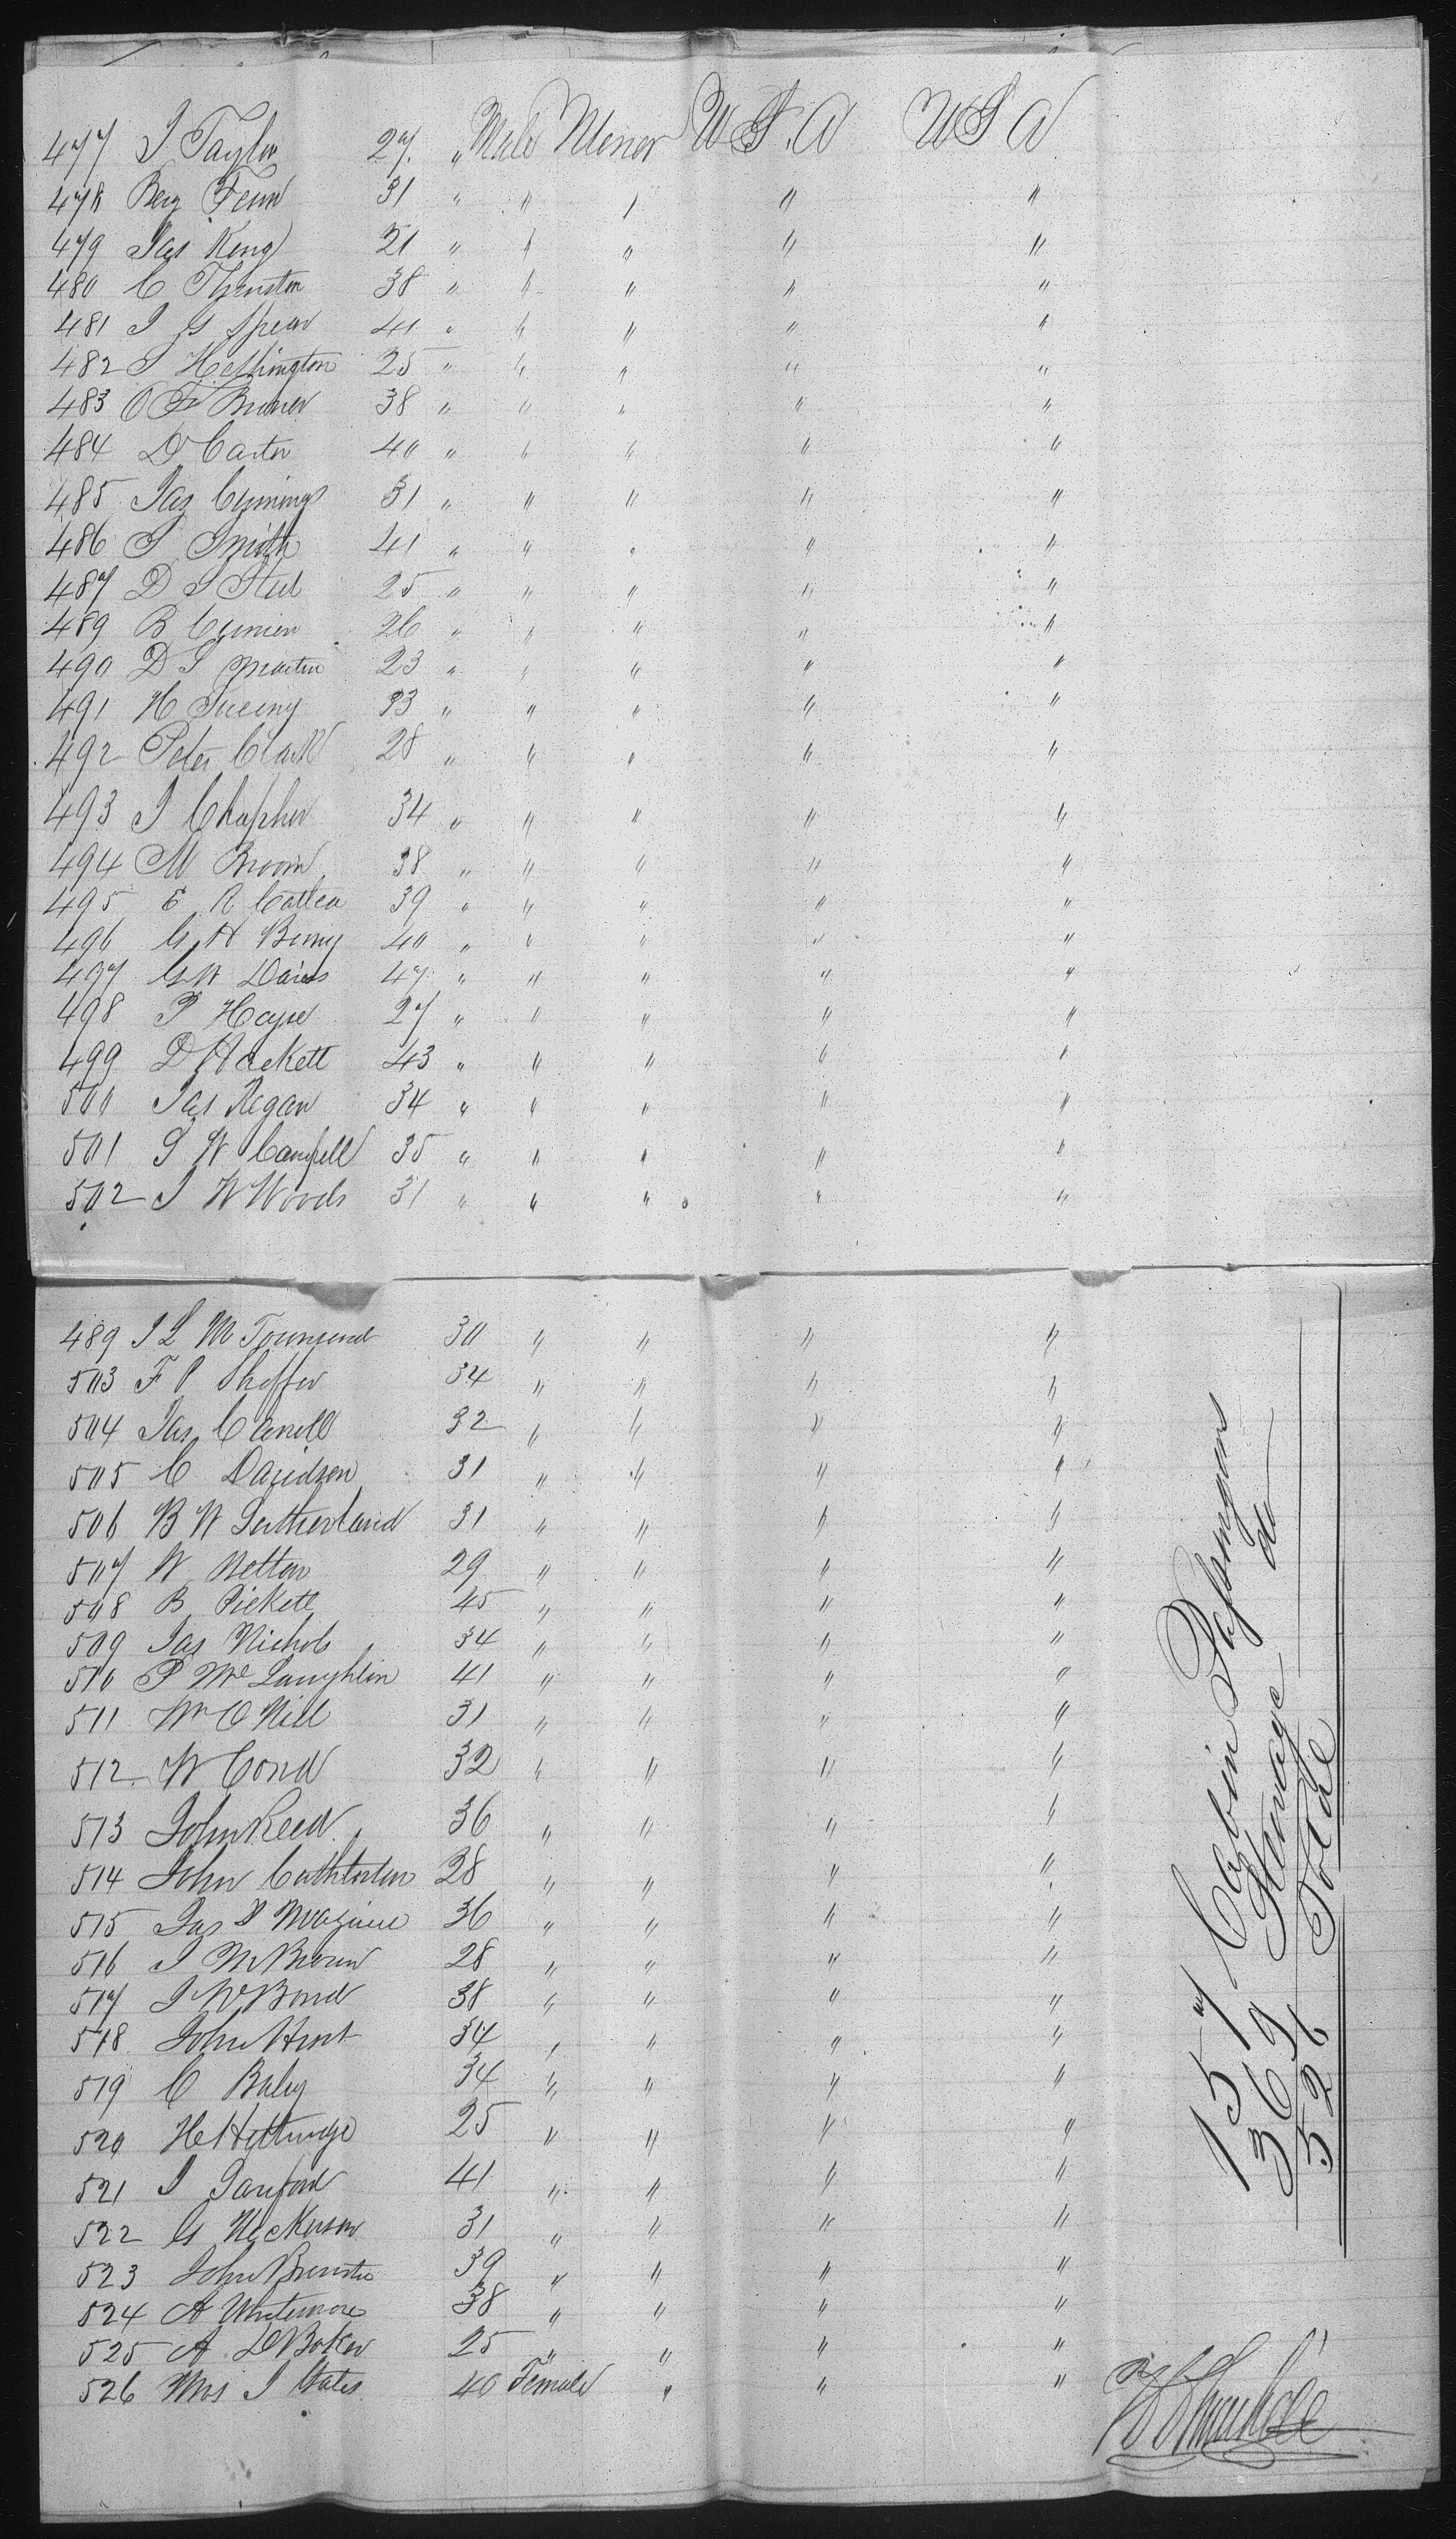 477 J Taylor 27 " Male Miner U.S.A U S A
478 Benj Fenn 31 " " " " "
479 Jas King 21 " " " " "
480 C Thurston 38 " " " " "
481 J G Spear 41 " " " " "
482 J Hethington 25 " " " " "
483 O F Bruner 38 " " " " "
484 D Carter 40 " " " " "
485 Jas Cumings 31 " " " " "
486 S Smith 41 " " " " "
487 D S Steel 25 " " " " "
489 B 26 " " " " "
490 D S Martin 23 " " " " "
491 H 33 " " " " "
492 Peter Clark 28 " " " " "
493 J 34 " " " " "
494 M Broom 38 " " " " "
495 E R 39 " " " " "
496 G H Berry 40 " " " " "
497 G W Davis 47 " " " " "
498 P 27 " " " " "
499 D Hackett 43 " " " " "
500 Jas Regan 34 " " " " "
501 S W Campell 35 " " " " "
502 J W Woods 31 " " " " "
489 J L M Townsend 30 " " " "
503 F P Sheffer 34 " " " "
504 Jas 32 " " " "
505 C Davidson 31 " " " "
506 B W Sutherland 31 " " " "
507 W Netton 29 " " " "
508 B Pickett 45 " " " "
509 Jas Nichols 34 " " " "
510 P Mc Laughlin 41 " " " "
511 Wm O Niel 31 " " " "
512 W Cond 32 " " " "
513 John Reed 36 " " " "
514 John 28 " " " "
515 Jas 36 " " " "
516 J M Brown 28 " " " "
517 J W Bond 38 " " " "
518 John Hunt 34 " " " "
519 C 34 " " " "
520 H 25 " " " "
521 J Sanford 41 " " " "
522 G Nickerson 31 " " " "
523 John 39 " " " "
524 A Whitemore 38 " " " "
525 A D Baker 25 " " " "
526 Mrs J Gates 40 Female " " "
157 Cabin Passengers
369 Steerage do
526 Total